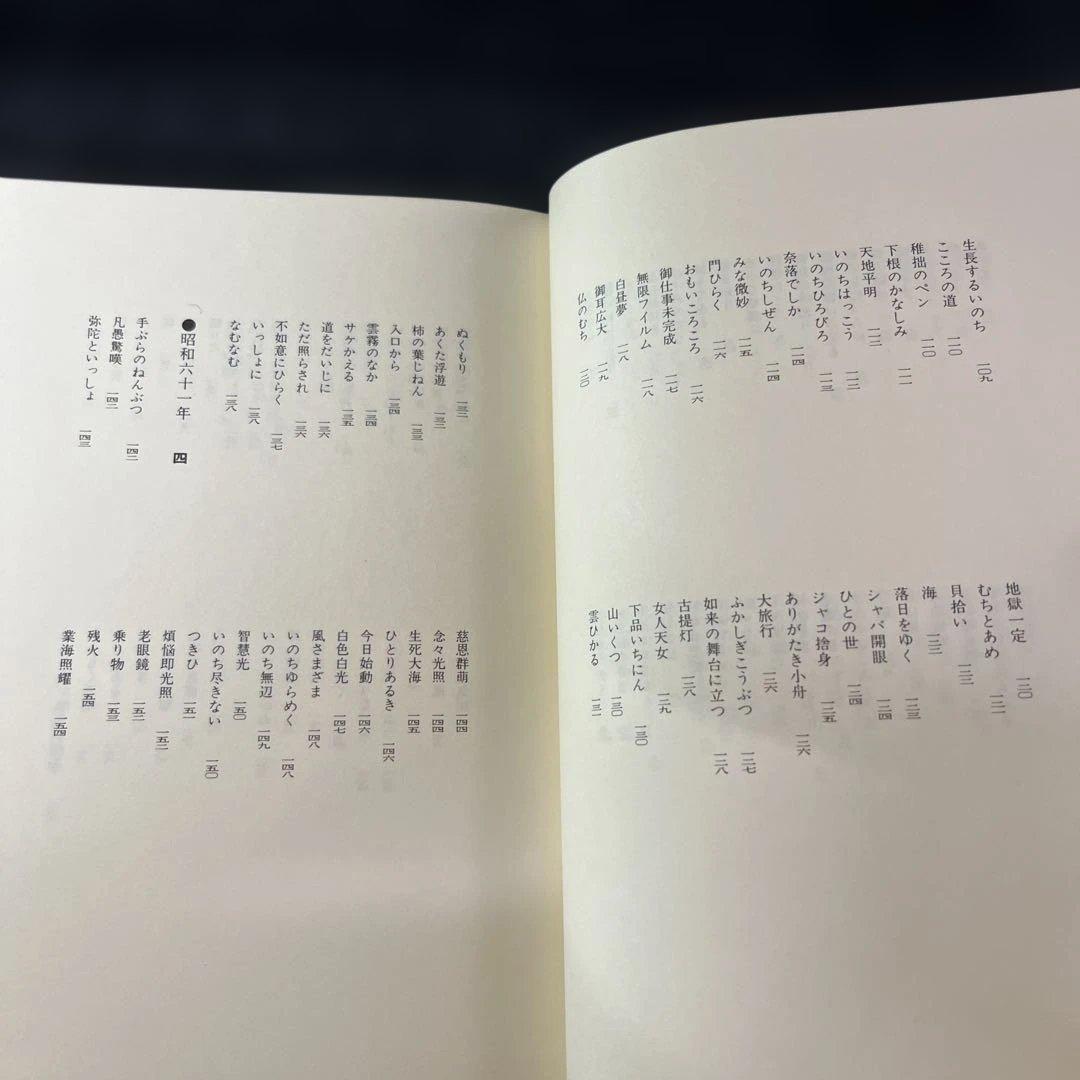 生長するいのち 一〇九
こころの道 一一〇
稚拙のペン 一一〇
下根のかなしみ 一一一
天地平明 一一二
いのちはっこう 一一二
いのちひろびろ 一一三
奈落でしか 一一四
いのちしぜん 一一四
みな微妙 一一五
門ひらく 一一六
おもいころころ 一一六
御仕事未完成 一一七
無限フイルム 一一八
白昼夢 一一八
御耳広大 一一九
仏のむち 一二〇
地獄一定 一二〇
むちとあめ 一二一
貝拾い 一二二
海 一二三
落日をゆく 一二三
シャバ開眼 一二四
ひとの世 一二四
ジャコ捨身 一二五
ありがたき小舟 一二六
大旅行 一二六
ふかしぎこうぶつ 一二七
如来の舞台に立つ 一二八
古提灯 一二八
女人天女 一二九
下品いちにん 一三〇
山いくつ 一三〇
雲ひかる 一三一
ぬくもり 一三二
あくた浮遊 一三二
柿の葉じねん 一三三
入口から 一三四
雲霧のなか 一三四
サケかえる 一三五
道をだいじに 一三六
ただ照らされ 一三六
不如意にひらく 一三七
いっしょに 一三八
なむなむ 一三八
●昭和六十一年 一四一
手ぶらのねんぶつ 一四二
凡愚驚嘆 一四二
弥陀といっしょ 一四三
慈恩群萌 一四四
念々光照 一四四
生死大海 一四五
ひとりあるき 一四六
今日始動 一四六
白色白光 一四七
風さまざま 一四八
いのちゆらめく 一四八
いのち無辺 一四九
智慧光 一五〇
いのち尽きない 一五〇
つきひ 一五一
煩悩即光照 一五二
老眼鏡 一五二
乗り物 一五三
残火 一五四
業海照耀 一五四